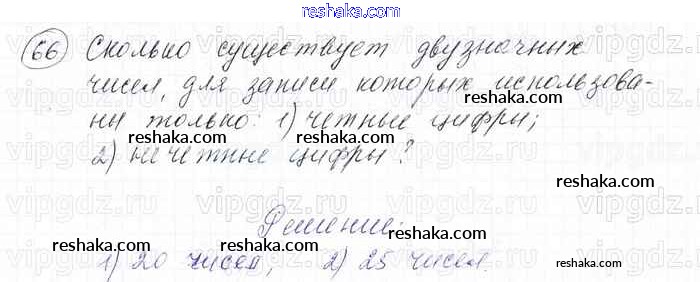 reshaka.com
66 Сколько существует двузначных
чисел, для записи которых использова-
ны только: 1) четные цифры;
2) нечетные цифры?
Решение:
1) 20 чисел, 2) 25 чисел.
vipgdz.com vipgdz.com vipgdz.com
reshaka.com reshaka.com
reshaka.com reshaka.com
reshaka.com
reshaka.com
reshaka.com reshaka.com
reshaka.com